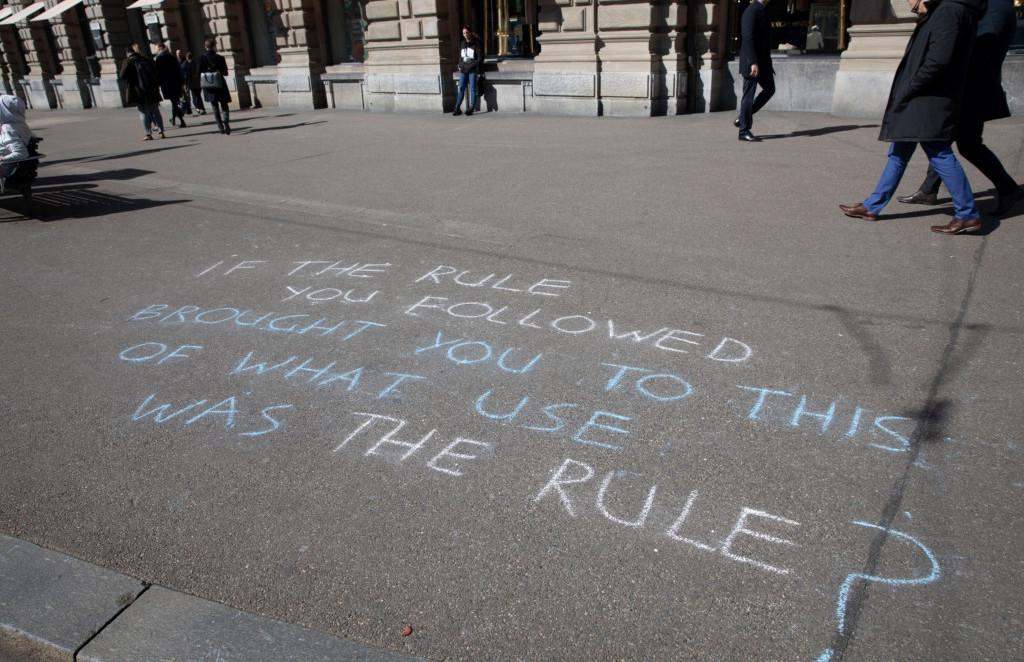 IF THE RULE
YOU FOLLOWED
BROUGHT YOU TO THIS
OF WHAT USE
WAS THE RULE?